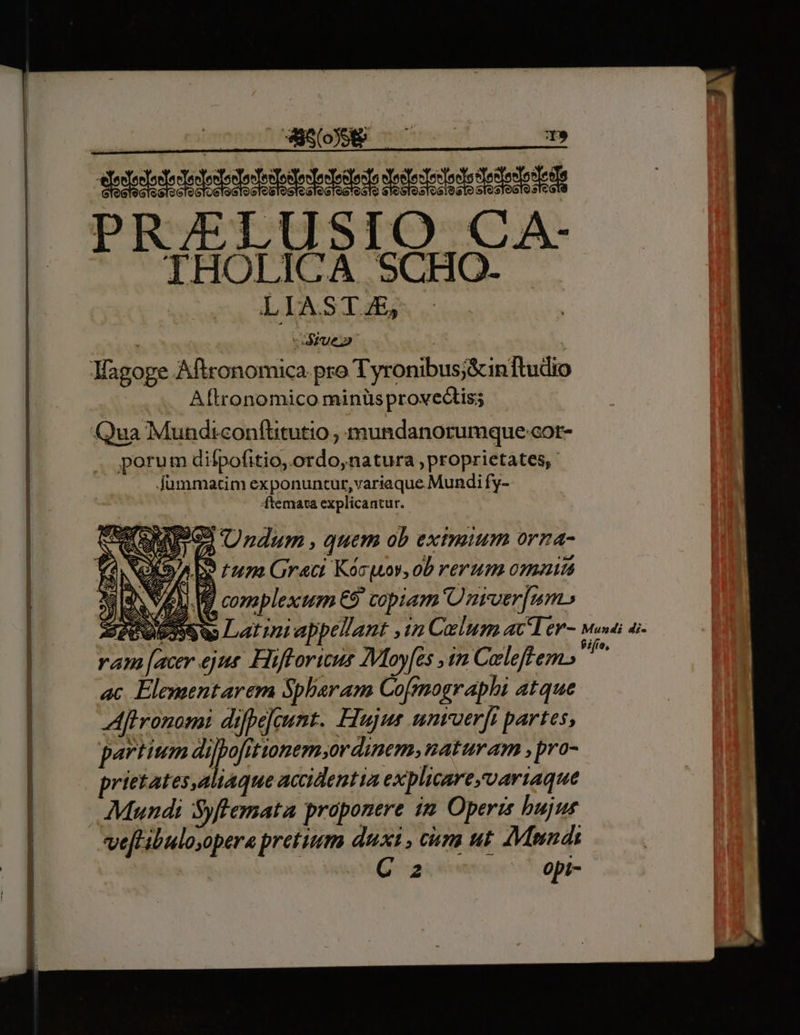 19
PRÆLUSIO CA-
THOLICA SCHO-
LIASTÆ,
Sive
Iſagoge Aſtronomica pro Tyronibus, & in ſtudio
Aſtronomico minùs provectis;
Qua Mundi conſtitutio, mundanorumque cor-
porum diſpoſitio, ordo, natura, proprietates,
ſummatim exponuntur, variaque Mundi ſy-
ſtemata explicantur.
MUndum, quem ob eximium orna-
tum Græci Κόσμον, ob rerum omniũ
complexum & copiam Univerſum
Latini appellant, in Cœlum ac Ter-
Mundi di-
viſio.
ram ſacer ejus Hiſtoricus Moyſes, in Cœleſtem
ac Elementarem Sphæram Coſmographi atque
Aſtronomi diſpeſcunt. Hujus univerſi partes,
partium diſpoſitionem, ordinem, naturam, pro-
prietates, aliaque accidentia explicare, variaque
Mundi Syſtemata proponere in Operis hujus
veſtibulo, operæ pretium duxi, cùm ut Mundi
C 2
opi-